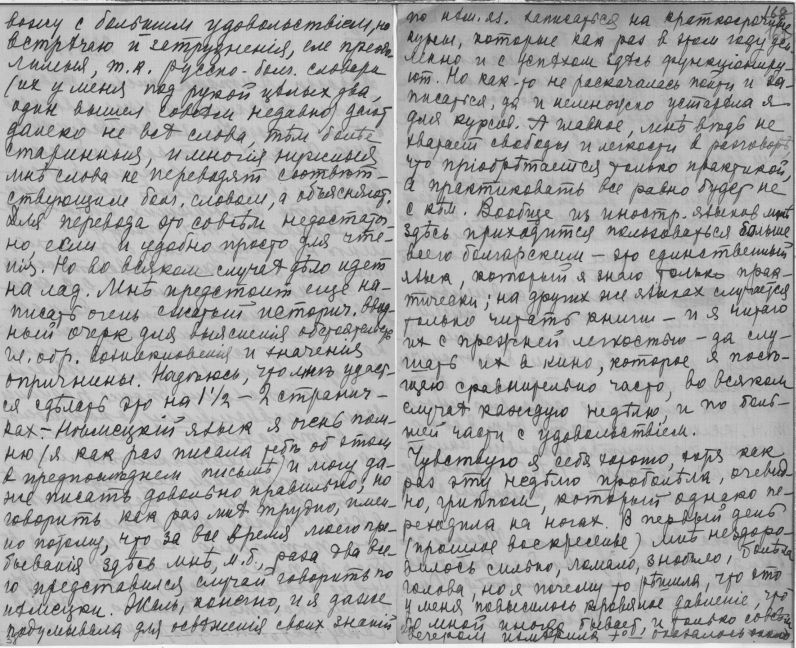 вожу с большим удовольствіем, но
встрѣчаю и затрудненія,
т.к. русско-болг. словари
(их у меня под рукой цѣлых два,
один вышел совсѣм недавно) дают
далеко не всѣ слова, тѣм болѣе
старинныя, и многія нужныя
мнѣ слова не переводят соотвѣт-
ствующим болг. словом, а объясняют.
Для перевода это совсѣм недостаточ-
но, если и удобно просто для чте-
нія. Но во всяком случаѣ дѣло идет
на лад. Мнѣ предстоит еще на-
писать очень сжатый историч. ввод-
ный очерк для выясненія обстоятельств,
гл. обр. возникновенія и значенія
опричнины. Надѣюсь, что мнѣ удаст-
ся сдѣлать это на 1½ – 2 странич-
ках. – Нѣмецкій язык я очень пом-
ню (я как раз писала тебѣ об этом
в предпослѣднем письмѣ) и могу да-
же писать довольно правильно, но
говорить как раз мнѣ трудно, имен-
но потому, что за все время моего пре-
быванія здѣсь мнѣ, м.б., раза два все-
го представился случай говорить по
нѣмецки. Жаль, конечно, и я даже
подумывала для освѣженія своих знаній
по нѣм. яз. записаться на краткосрочные
курсы, которые как раз в этом году
и с успѣхом здѣсь функціониру-
ют. Но как-то не раскачалась пойти и за-
писаться, да и немножко устарѣла я
для курсов. А главное, мнѣ вѣдь не
хватает свободы и легкости в разговорѣ,
что пріобрѣтается только практикой,
а практиковать все равно будет не
с кѣм. Вообще из иностр. языков мнѣ
здѣсь приходится пользоваться больше
всего болгарским – это единственный
язык, который я знаю только прак-
тически; на других же языках случается
только читать книги – и я читаю
их с прежней легкостью – да слу-
шать их в кино, которое я посѣ-
щаю сравнительно часто, во всяком
случаѣ каждую недѣлю, и по боль-
шей части с удовольствіем.
Чувствую я себя хорошо, хотя как
раз эту недѣлю проболѣла, очевид-
но, гриппом, который однако пе-
реходила на ногах. В первый день
(прошлое воскресенье) мнѣ нездоро-
вилось сильно, ломало, знобило, болѣла
голова, но я почему то рѣшила, что это
у меня повысилось кровяное давленіе, что
со мной иногда бывает, и только совсѣм
вечером измѣрила t°, оказалось